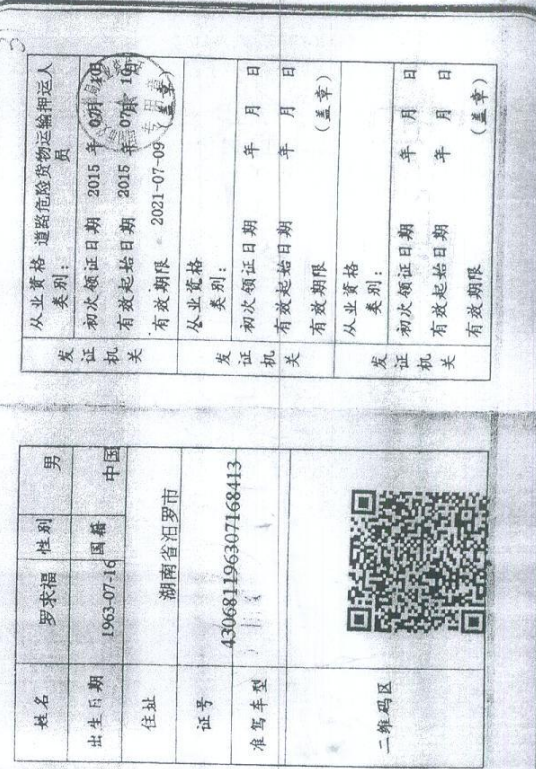 姓名 罗求福 性别 男
出生日期 1963-07-16 国籍 中国
住址 湖南省汨罗市
证号 430681196307168413
准驾车型
二维码区
发证机关
从业资格类别: 道路危险货物运输押运人员
初次领证日期 2015 年 07月 10日
有效起始日期 2015 年 07月 10日
有效期限 2021-07-09 (盖章)
发证机关
从业资格类别:
初次领证日期 年 月 日
有效起始日期 年 月 日
有效期限 (盖章)
发证机关
从业资格类别:
初次领证日期 年 月 日
有效起始日期 年 月 日
有效期限 (盖章)